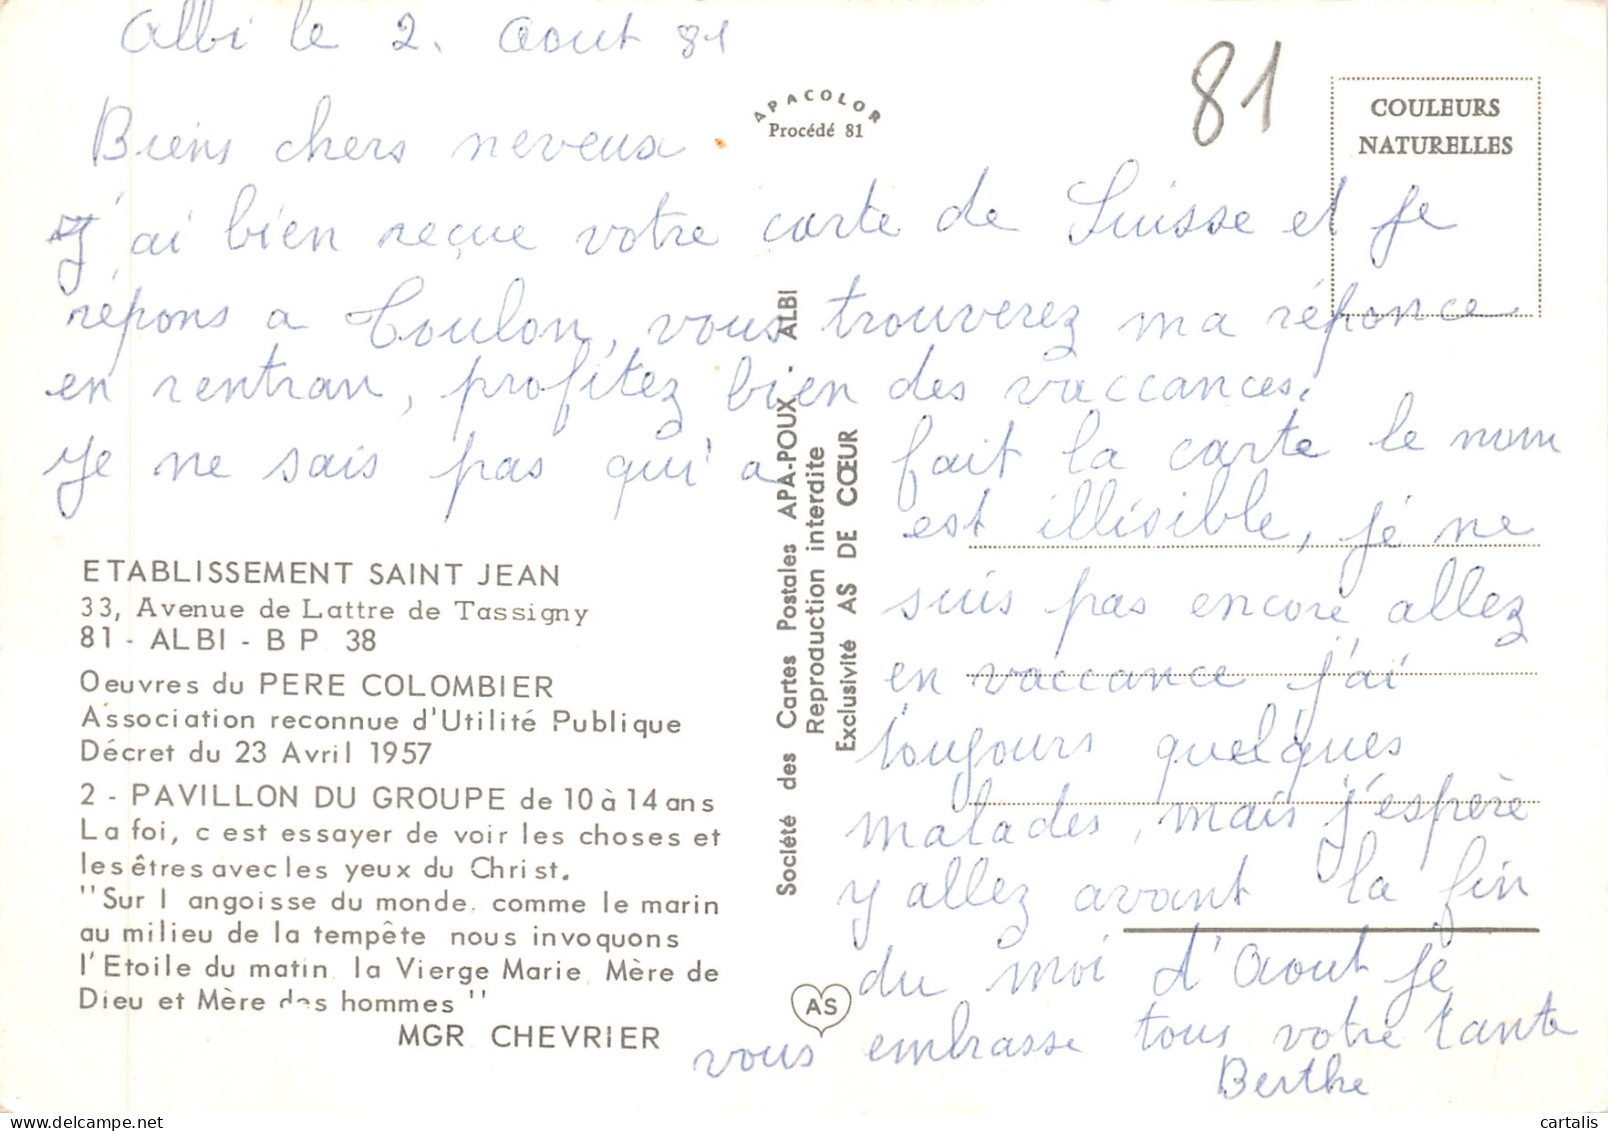 Albi le 2. Aout 81
Biens chers neveux.
J'ai bien reçue votre carte de Suisse et je
répons a Toulon, vous trouverez ma réponce
en rentran, profitez bien des vaccances.
je ne sais pas qui a fait la carte le nom
est illisible, je ne
suis pas encore allez
en vaccance j'ai
toujours quelques
malades, mais j'espère
y allez avant la fin
du moi d'Aout je
vous embrasse tous votre tante
Berthe
81
APACOLOR
Procédé 81
COULEURS
NATURELLES
ETABLISSEMENT SAINT JEAN
33, Avenue de Lattre de Tassigny
81 - ALBI - B P 38
Oeuvres du PERE COLOMBIER
Association reconnue d'Utilité Publique
Décret du 23 Avril 1957
2 - PAVILLON DU GROUPE de 10 à 14 ans
La foi, c est essayer de voir les choses et
les êtres avec les yeux du Christ.
"Sur l angoisse du monde, comme le marin
au milieu de la tempête nous invoquons
l'Etoile du matin la Vierge Marie Mère de
Dieu et Mère des hommes"
MGR CHEVRIER
Société des Cartes Postales APA-POUX - ALBI
Reproduction interdite
Exclusivité AS DE CŒUR
AS
www.delcampe.net
cartalis